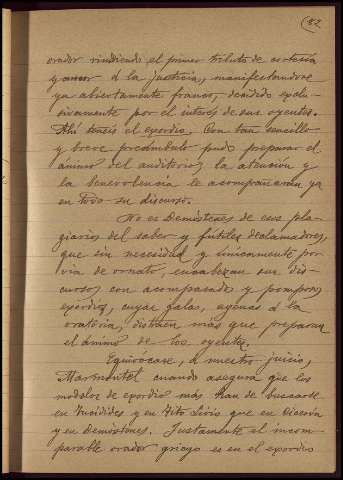 (82
orador rindiendo el primer tributo de cortesía
y amor á la justicia, manifestandose
ya abiertamente franco, decidido exclu-
sivamente por el interés de sus oyentes.
Ahí teneis el exordio. Con tan sencillo
y breve preámbulo pudo preparar el
ánimo del auditorio; la atención y
la benevolencia le acompañarán ya
en todo su discurso.
No es Demóstenes de esos pla-
giarios del saber y fútiles declamadores,
que sin necesidad y únicamente por
via de ornato, encabezan sus dis-
cursos con acompasados y pomposos
exordios, cuyas galas, agenas á la
oratória, distraen más que preparan
el ánimo de los oyentes.
Equivócase, á nuestro juicio,
Marmontel cuando asegura que los
modelos de exordio más han de buscarse
en Tucídides y en Tito Livio que en Cicerón
y en Demóstenes. Justamente el incom-
parable orador griego es en el exordio